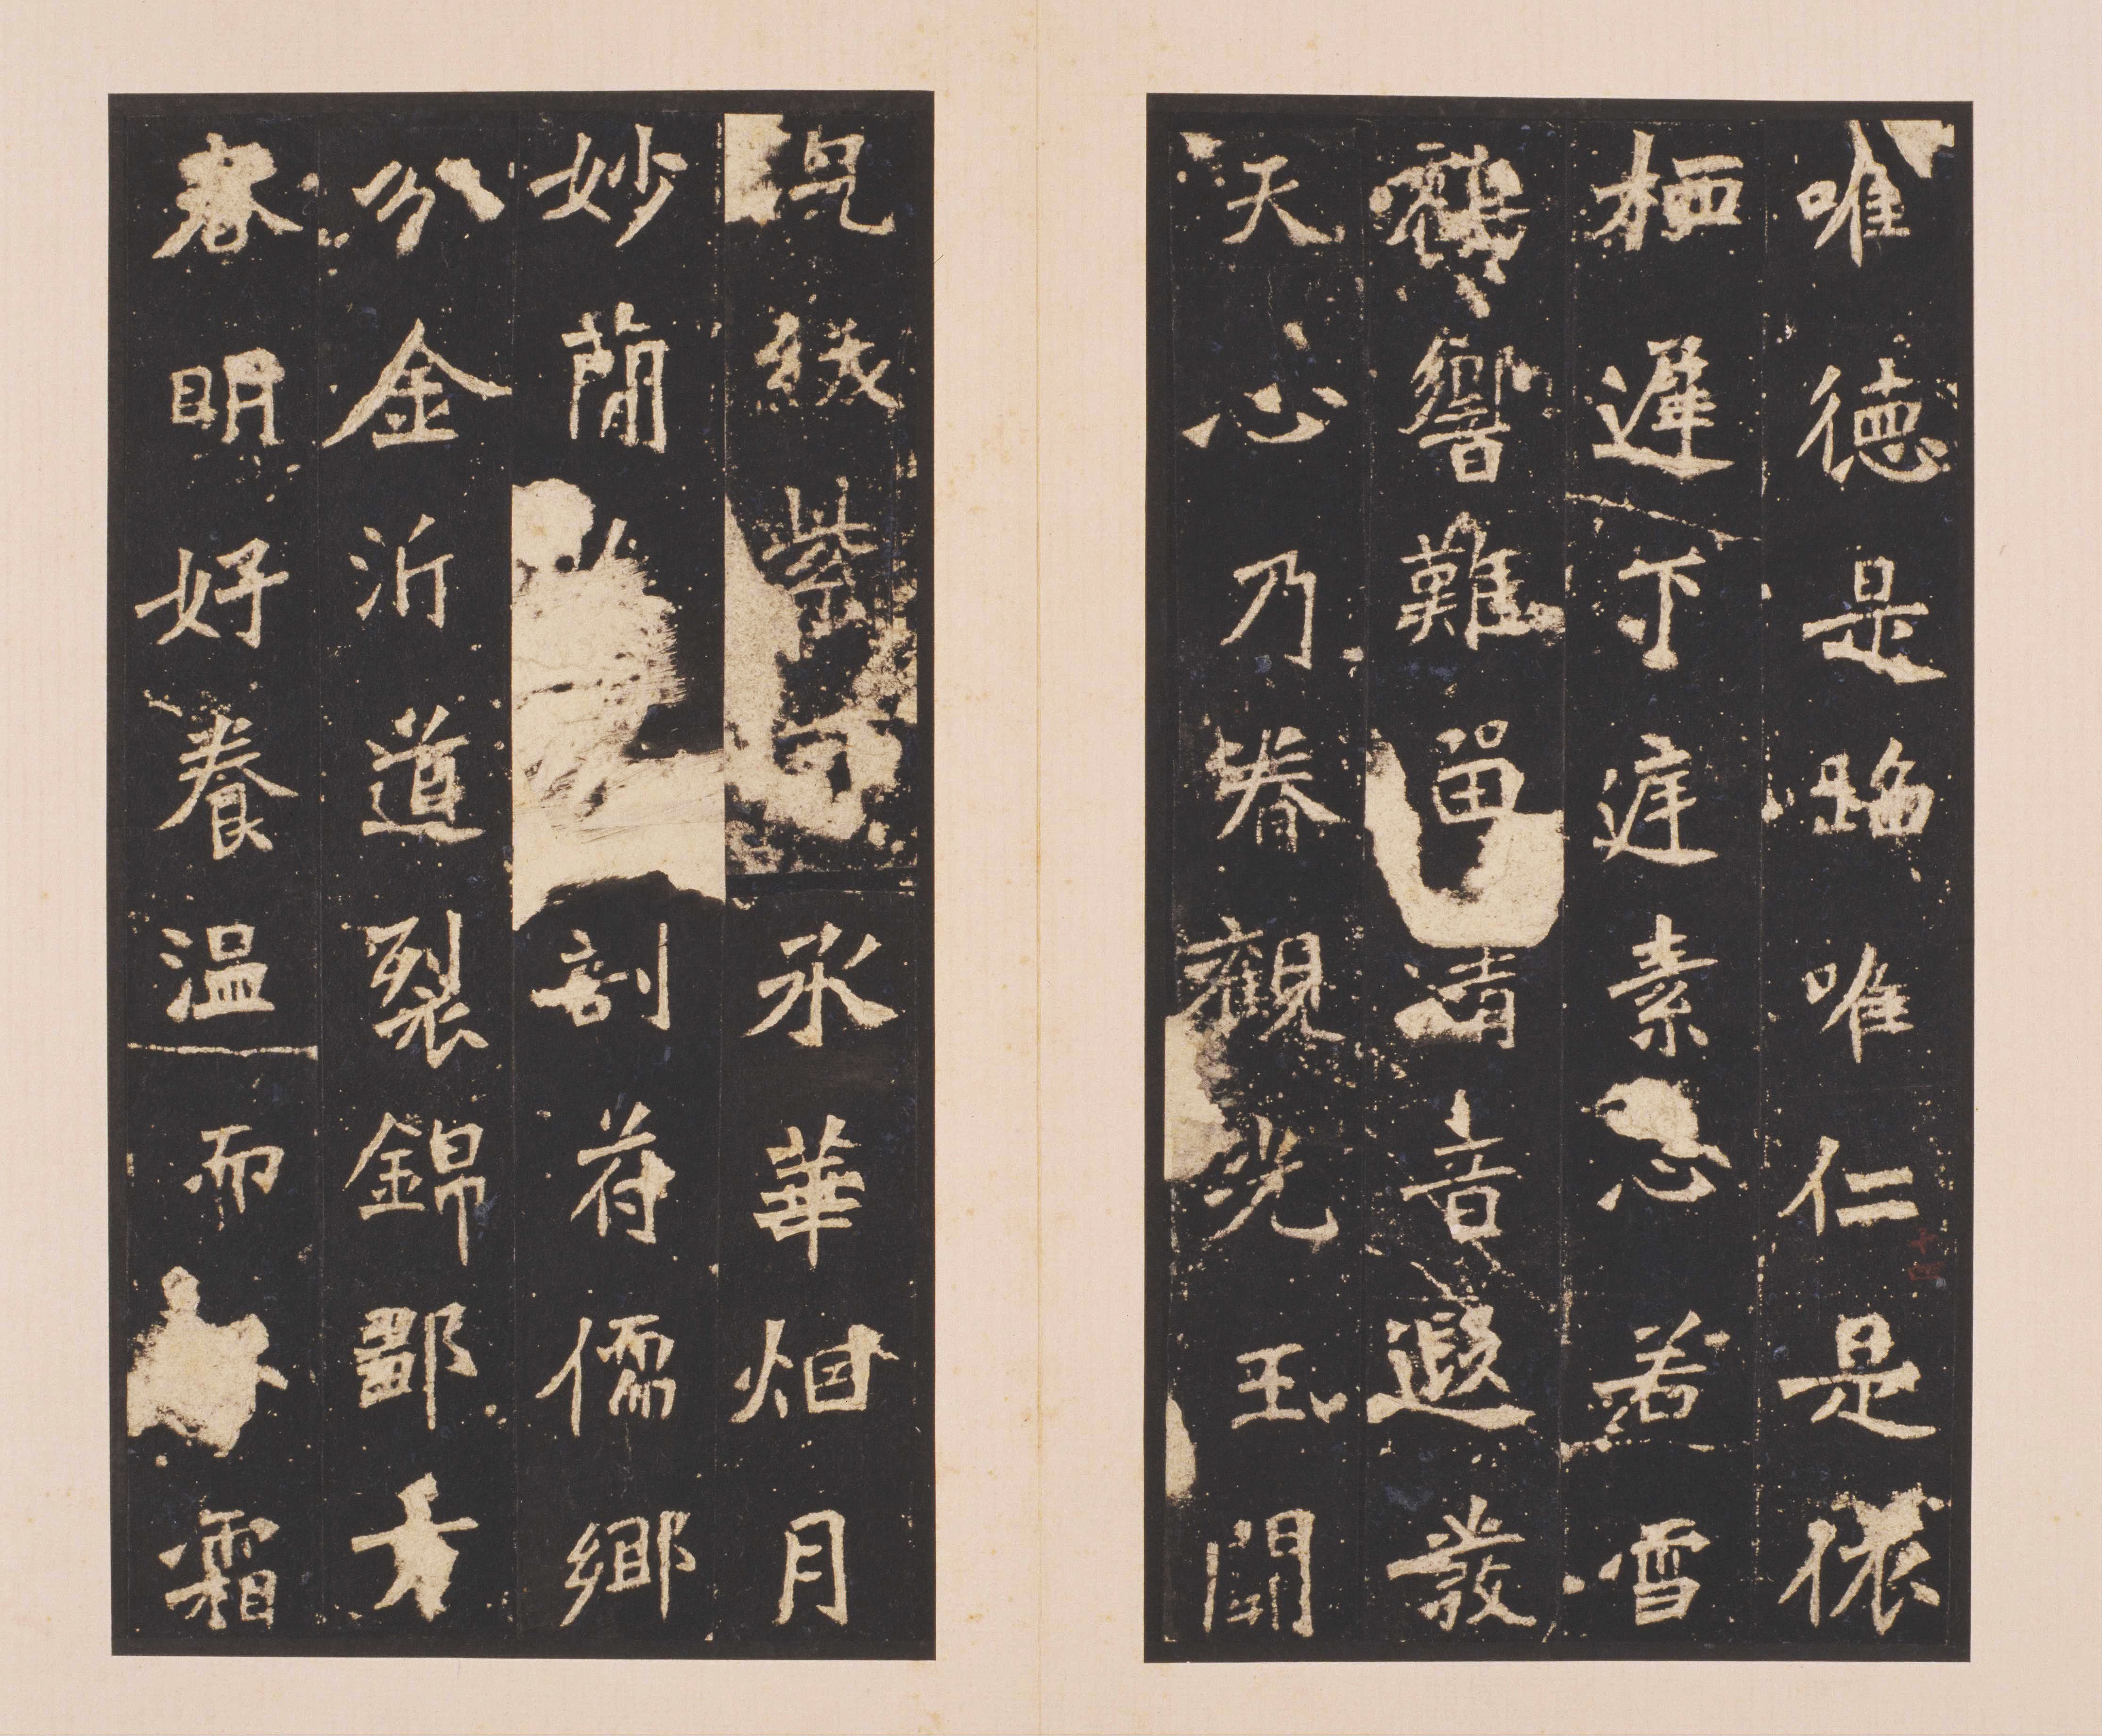 唯德是蹈唯仁是依
栖遲下庭素心若雪
鶴響難留清音遐發
天心乃眷觀光玉闕
紱紫承華烟月
妙簡剖符儒鄉
分金沂道裂錦鄒方
春明好養溫而霜
十四